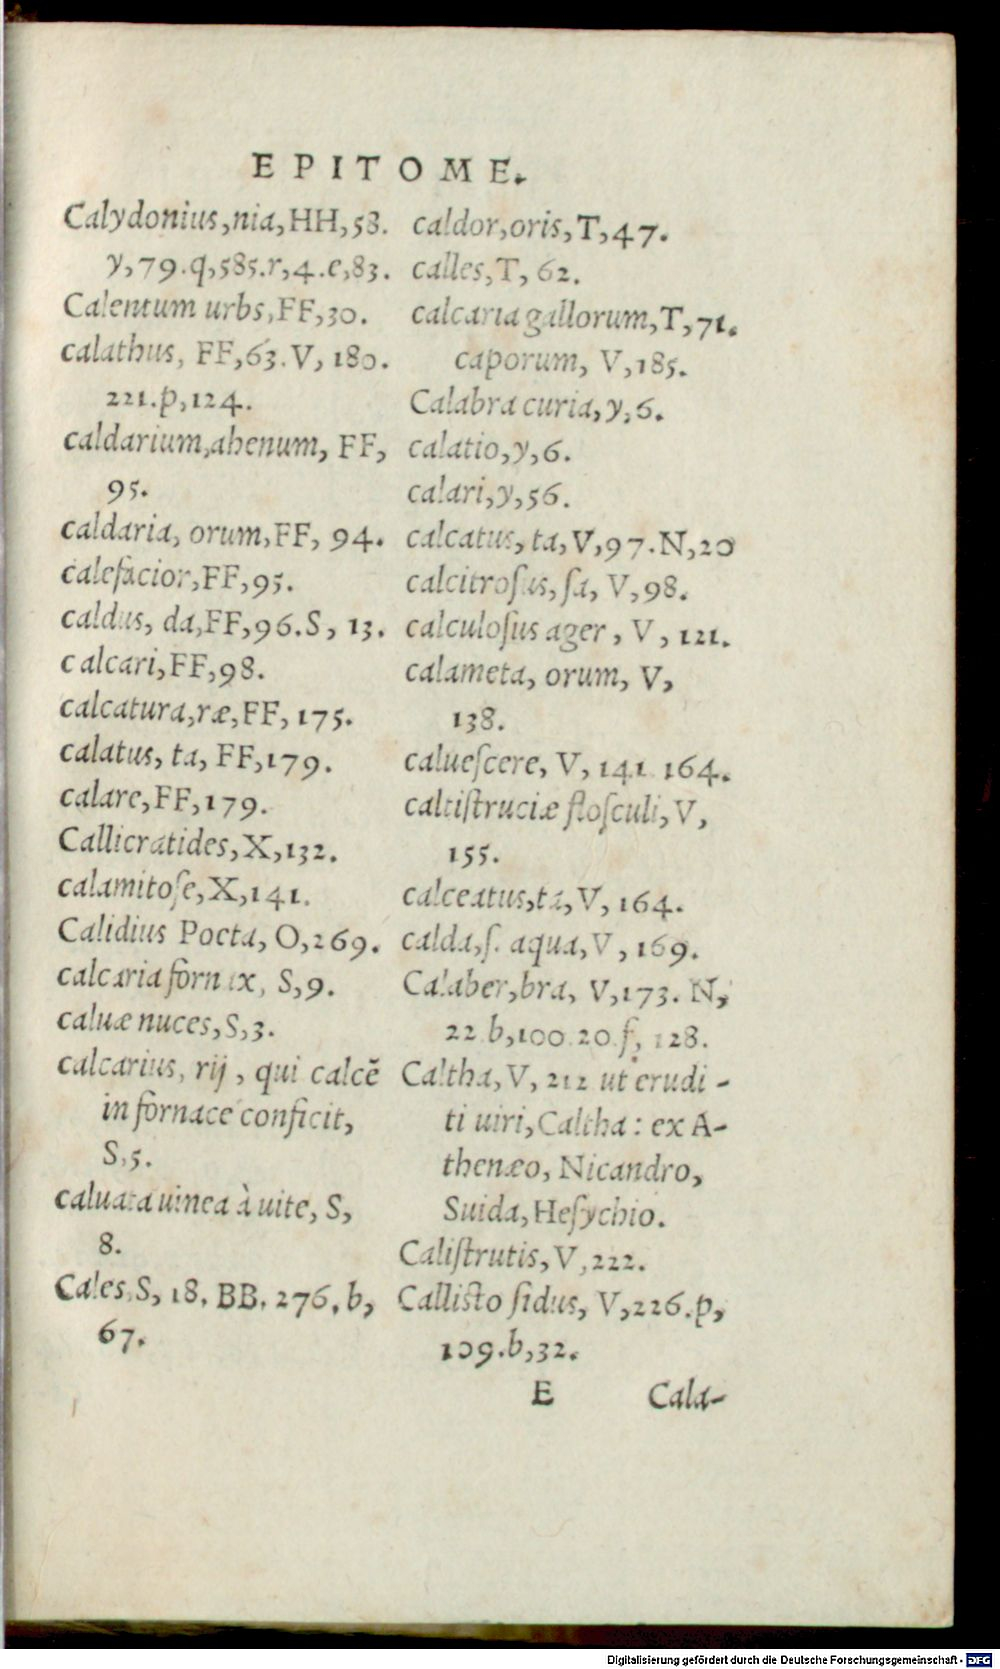 EPITOME.
Calydonius, nia, HH, 58.
y, 79. q, 585. r, 4. e, 83.
Calentum urbs, FF, 30.
calathus, FF, 63. V, 180.
221. p, 124.
caldarium, ahenum, FF,
95.
caldaria, orum, FF, 94.
calefacior, FF, 95.
caldus, da, FF, 96. S, 13.
calcari, FF, 98.
calcatura, ræ, FF, 175.
calatus, ta, FF, 179.
calare, FF, 179.
Callicratides, X, 132.
calamitoſe, X, 141.
Calidius Poeta, O, 269.
calcaria fornax, S, 9.
caluæ nuces, S, 3.
calcarius, rij, qui calcē
in fornace conficit,
S, 5.
caluata uinea à uite, S,
8.
Cales, S, 18. BB. 276. b,
67.
caldor, oris, T, 47.
calles, T, 62.
calcaria gallorum, T, 71.
caporum, V, 185.
Calabra curia, y, 6.
calatio, y, 6.
calari, y, 56.
calcatus, ta, V, 97. N, 20
calcitroſus, ſa, V, 98.
calculoſus ager, V, 121.
calameta, orum, V,
138.
calueſcere, V, 141. 164.
caltiſtruciæ floſculi, V,
155.
calceatus, ta, V, 164.
calda, ſ. aqua, V, 169.
Calaber, bra, V, 173. N,
22. b, 100. 20. f, 128.
Caltha, V, 212 ut erudi-
ti uiri, Caltha: ex A-
thenæo, Nicandro,
Suida, Heſychio.
Caliſtrutis, V, 222.
Callisto ſidus, V, 226. p,
109. b, 32.
E Cala-
Digitalisierung gefördert durch die Deutsche Forschungsgemeinschaft - DFG